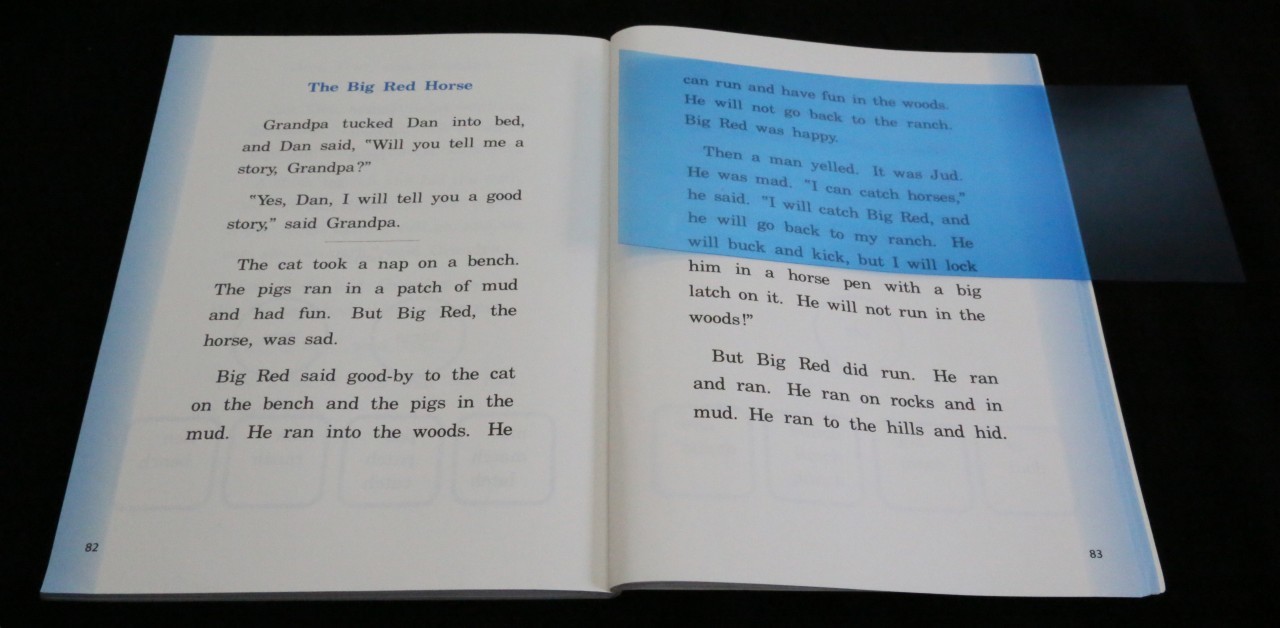 The Big Red Horse
Grandpa tucked Dan into bed,
and Dan said, "Will you tell me a
story, Grandpa?"
"Yes, Dan, I will tell you a good
story," said Grandpa.
The cat took a nap on a bench.
The pigs ran in a patch of mud
and had fun. But Big Red, the
horse, was sad.
Big Red said good-by to the cat
on the bench and the pigs in the
mud. He ran into the woods. He
82
can run and have fun in the woods.
He will not go back to the ranch.
Big Red was happy.
Then a man yelled. It was Jud.
He was mad. "I can catch horses,"
he said. "I will catch Big Red, and
he will go back to my ranch. He
will buck and kick, but I will lock
him in a horse pen with a big
latch on it. He will not run in the
woods!"
But Big Red did run. He ran
and ran. He ran on rocks and in
mud. He ran to the hills and hid.
83